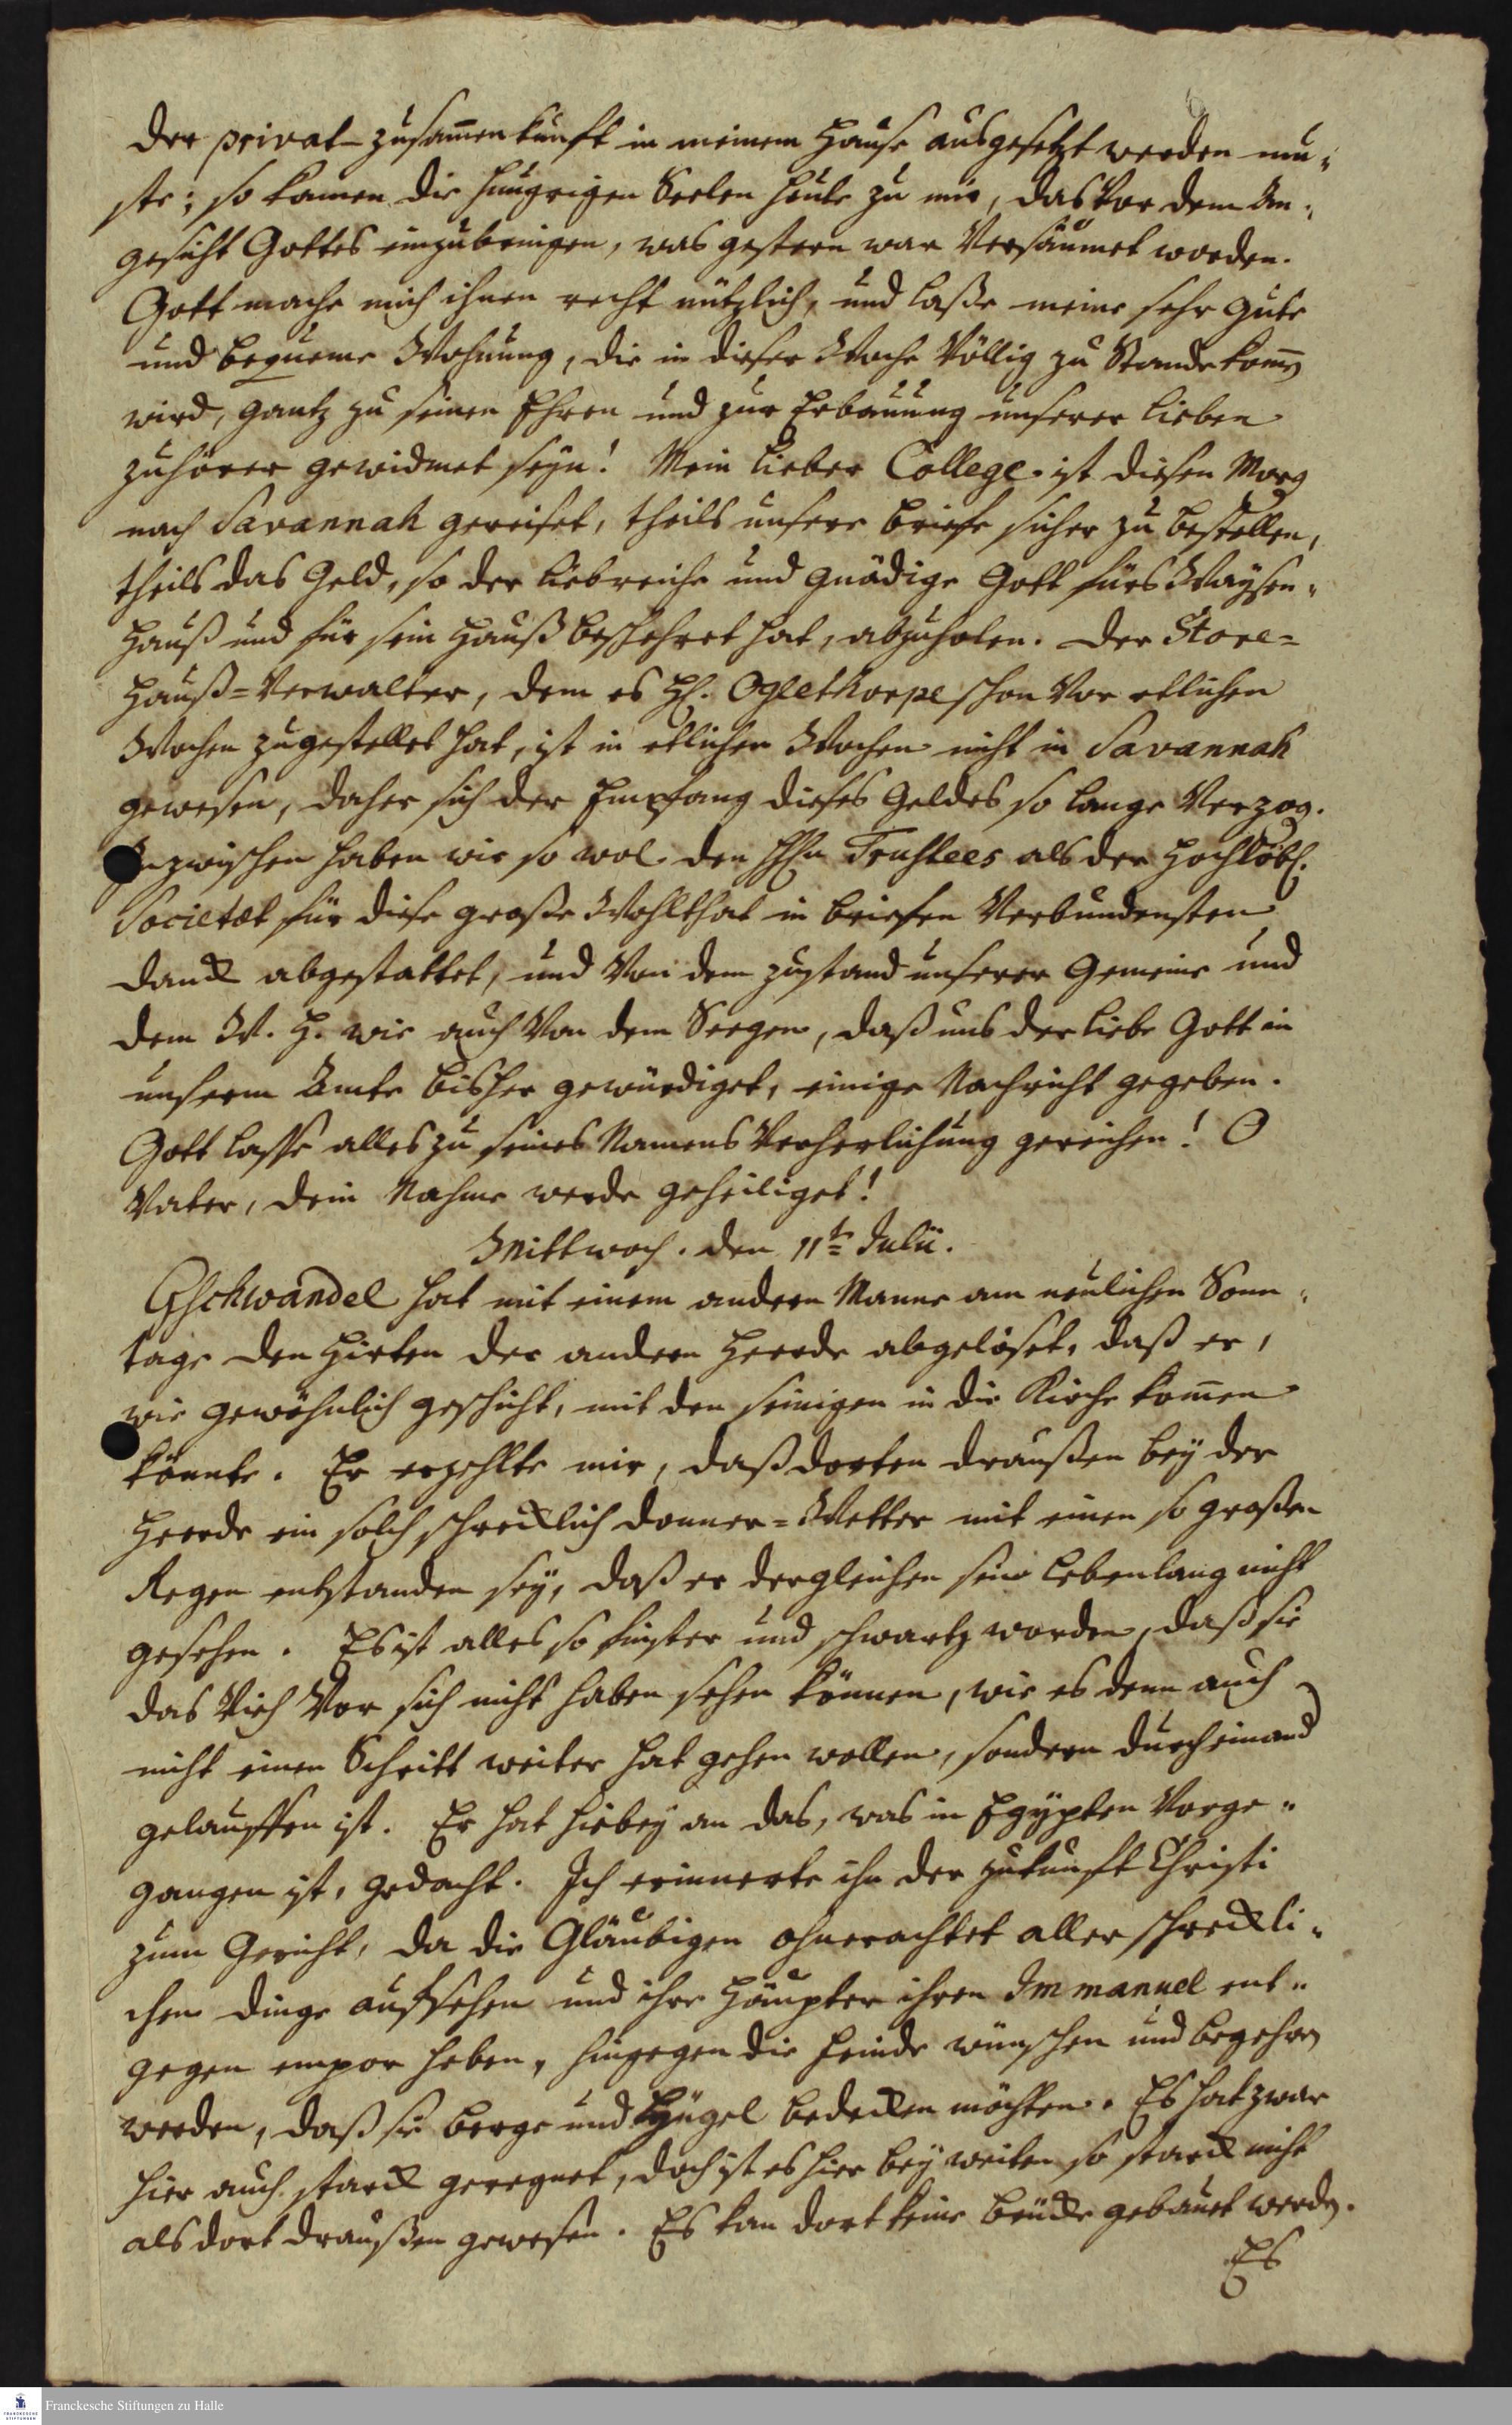 der privat-Zusam̄enkunft in meinem Hause ausgesetzt werden mu-
ste; so kamen die hungrigen Seelen heute zu mir, das vor dem An-
gesicht Gottes einzubringen, was gestern war versäumet worden.
Gott mache mich ihnen recht nützlich, und laße meine sehr gute
und bequeme Wohnung, die in dieser Woche völlig zu Stande kom̄en
wird, gantz zu seinen Ehren und zur Erbauung unserer lieben
Zuhörer gewidmet seyn! Mein lieber College ist diesen Morg
nach Savannah gereiset, theils unsere Briefe sicher zu bestellen,
theils das Geld, so der liebreiche und gnädige Gott fürs Waysen-
Hauß und für sein Hauß beschehret hat, abzuholen. Der Store=
Hauß=Verwalter, dem es H. Oglethorpe schon vor etlichen
Wochen zugestellet hat, ist in etlichen Wochen nicht in Savannah
gewesen, daher sich der Empfang dieses Geldes so lange verzog.
Inzwischen haben wir so wol den HHn Trustees als der Hochlöbl.
Societæt für diese große Wohlthat in Briefen verbundensten
Danck abgestattet, und von dem Zustand unserer Gemeine und
dem W. H. wie auch von dem Seegen, daß uns der liebe Gott in
unserm Amte bisher gewürdiget, einige Nachricht gegeben.
Gott lasse alles zu seines Namens Verherlichung gereichen! O
Vater, dein Nahme werde geheiliget!
Mittwoch. den 11te Julii.
Gschwandel hat mit einem andern Manne am neulichen Sonn-
tage den Hirten der andern Heerde abgelöset, daß er,
wie gewöhnlich geschicht, mit den seinigen in die Kirche kom̄en
könnte. Er erzehlte mir, daß dorten draußen bey der
Heerde ein solch schrecklich Donner=Wetter mit einen so großen
Regen entstanden sey, daß er dergleichen sein Lebenlang nicht
gesehen. Es ist alles so finster und schwartz worden, daß sie
das Vieh vor sich nicht haben sehen können, wie es denn auch
nicht einen Schritt weiter hat gehen wollen, sondern durch einand
gelauffen ist. Er hat hiebey an das, was in Egypten vorge-
gangen ist, gedacht. Ich erinnerte ihn der Zukunft Christi
zum Gericht, da die Gläubigen ohnerachtet aller schreckli-
chen Dinge aufsehen und ihre Häupter ihren Immanuel ent-
gegen empor heben, hingegen die Feinde wünschen und begehren
werden, daß sie Berge und Hügel bedecken möchten. Es hat zwar
hier auch starck geregnet, doch ist es hier bey weiten so starck nicht
als dort draußen gewesen. Es kan dort keine Brücke gebauet werden.
Es
Franckesche Stiftungen zu Halle